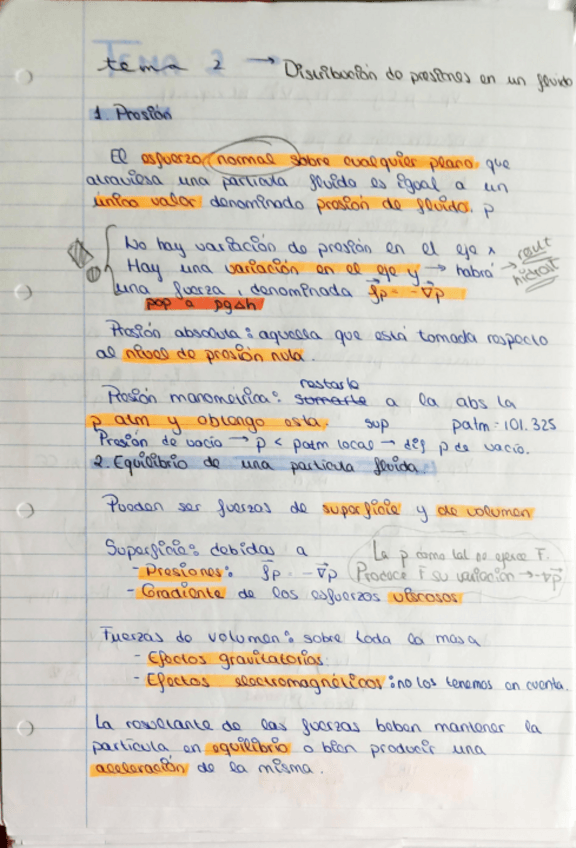 tema 2 → Distribución de presiones en un fluido
1. Presión
El esfuerzo normal sobre cualquier plano que
atraviesa una partícula fluida es igual a un
único valor denominado presión de fluido. p
No hay variación de presión en el eje x
Hay una variación en el eje y → habrá →
una fuerza, denominada fp = -∇p
pop a pgΔh
Presión absoluta: aquella que está tomada respecto
al nivel de presión nula.
restarle
Presión manométrica: somarle a la abs la
p atm y obtengo esta. sup patm = 101.325
Presión de vacío → p < patm local → dif p de vacío.
2. Equilibrio de una partícula fluida.
Pueden ser fuerzas de superficie y de volumen
Superficie: debidas a
La p como tal no ejerce F.
- Presiones: fp = -∇p
Produce F su variación → -∇p
- Gradiente de los esfuerzos viscosos
Fuerzas de volumen: sobre toda la masa
- Efectos gravitatorios.
- Efectos electromagnéticos: no los tenemos en cuenta.
La resultante de las fuerzas beben mantener la
partícula en equilibrio o bien producir una
aceleración de la misma.